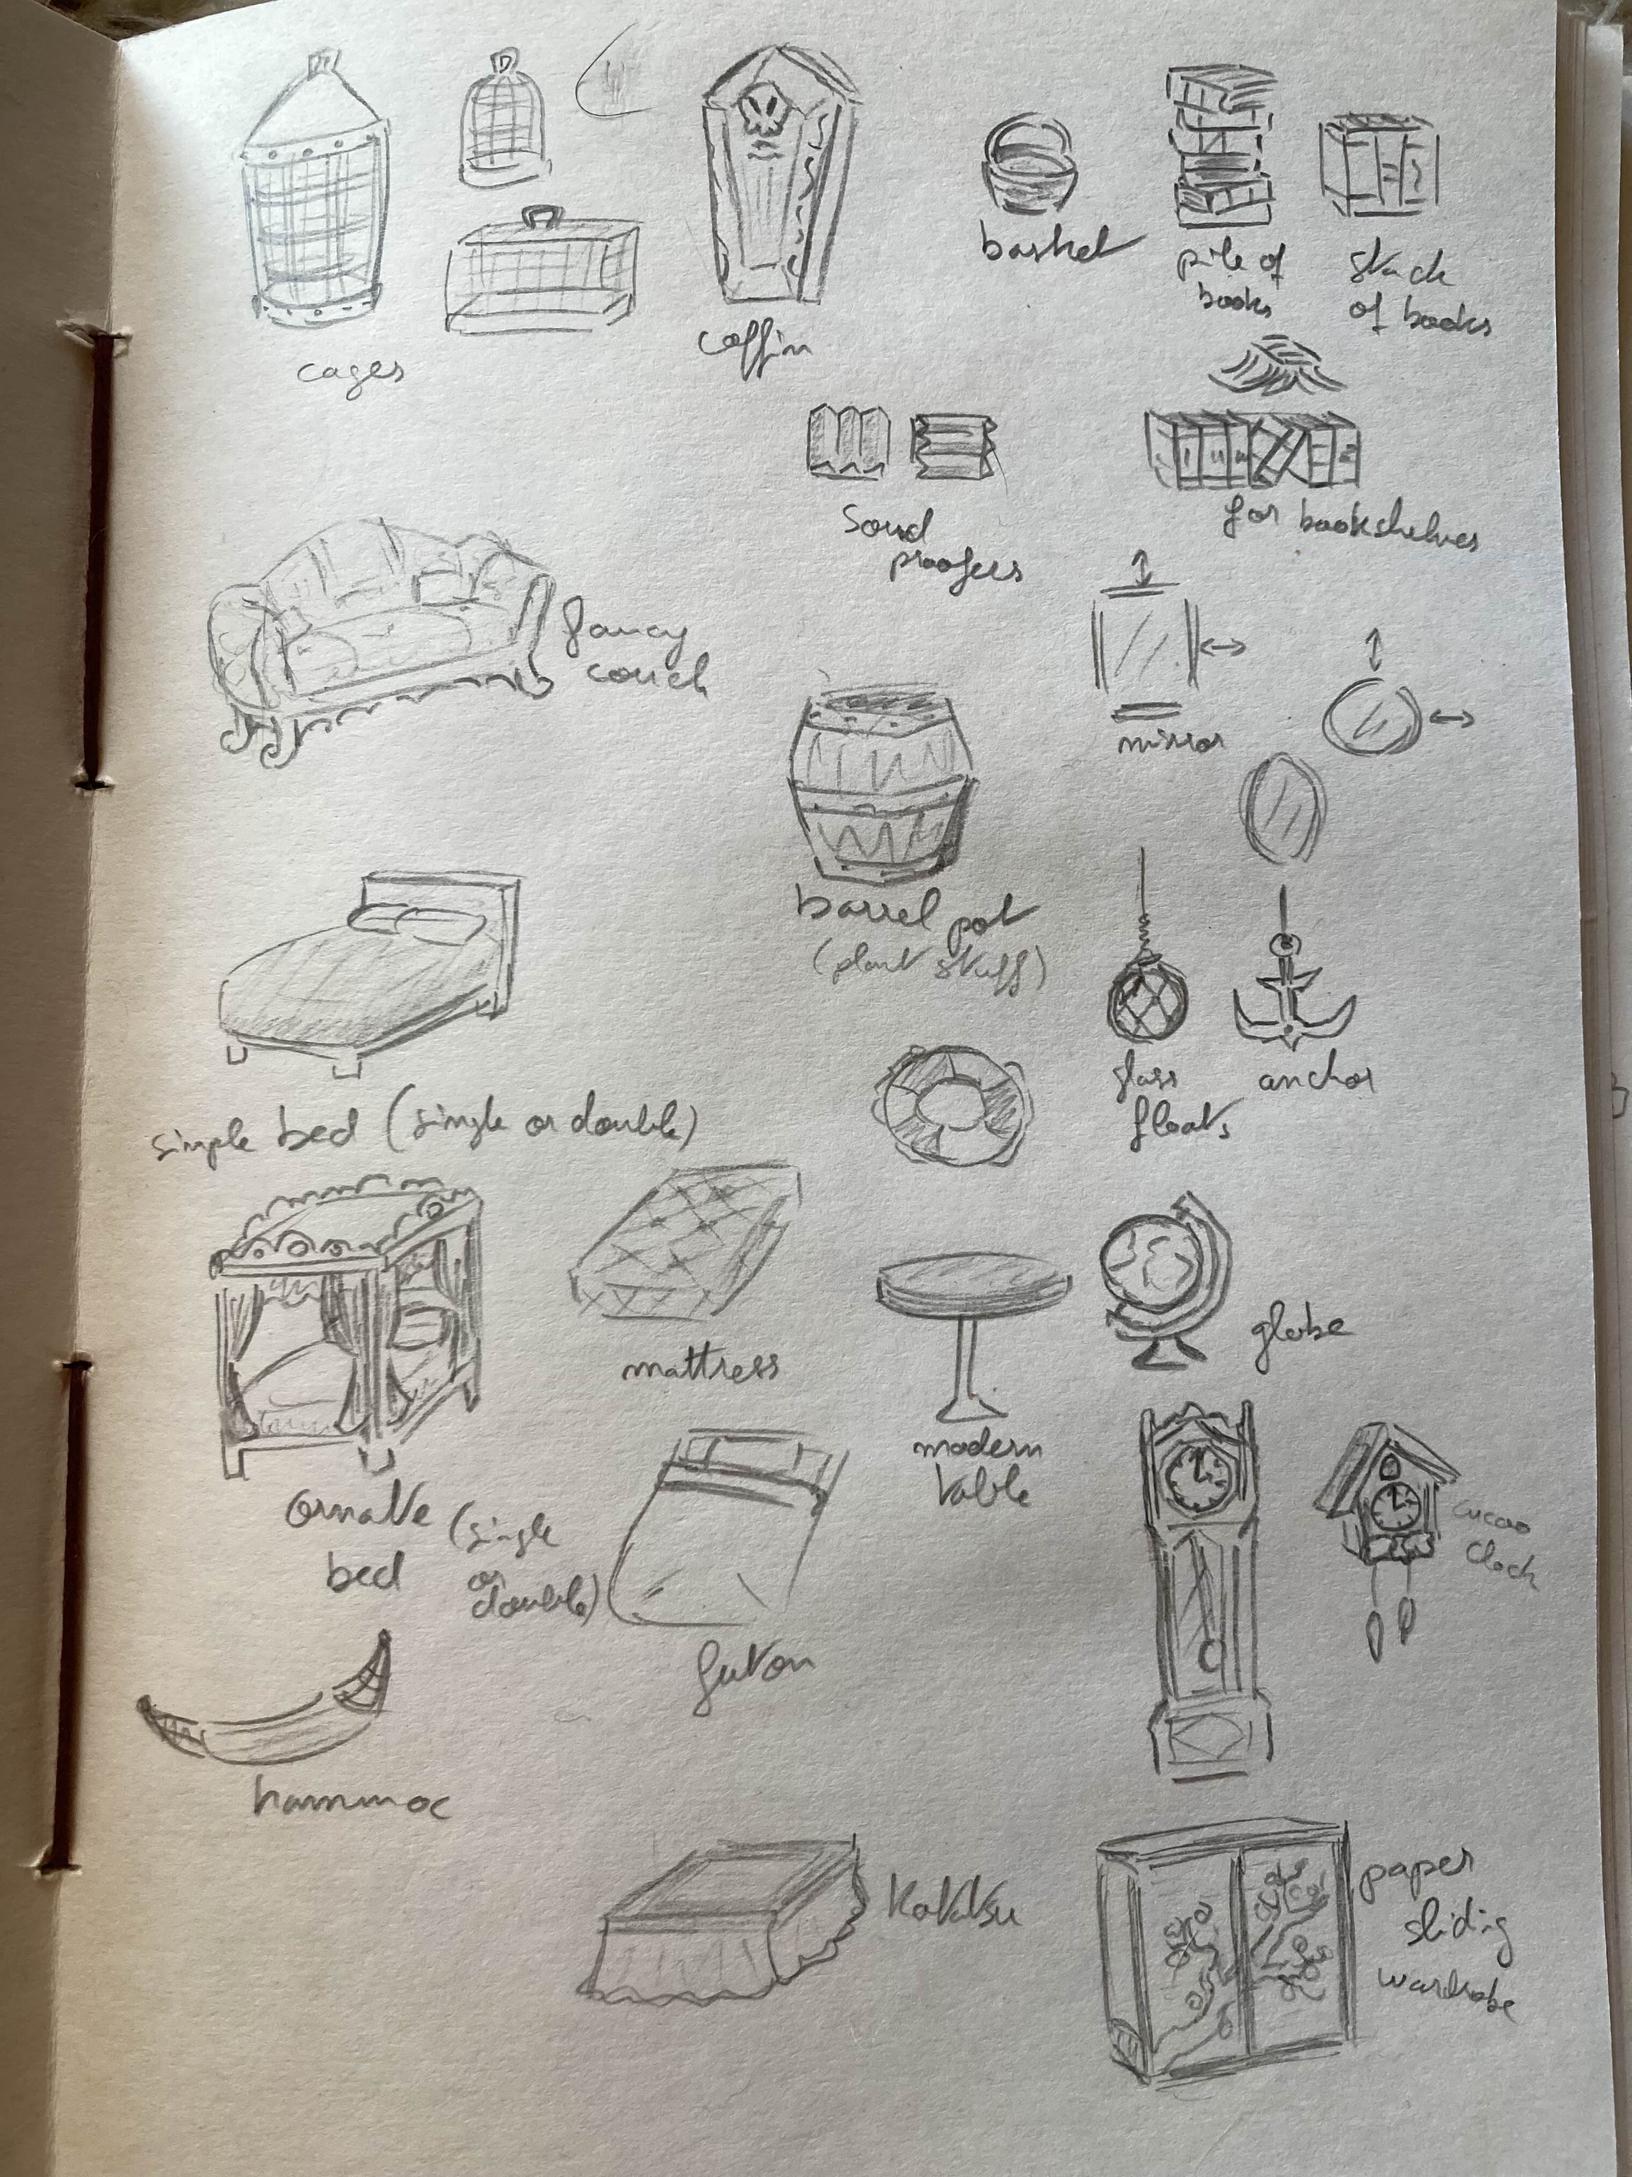 cages
coffin
basket
pile of
books
stack
of books
Sound
proofers
for bookshelves
fancy
couch
mirror
barrel pot
(plant stuff)
glass
floats
anchor
simple bed (single or double)
mattress
globe
modern
table
ornate
bed
(single
or
double)
futon
cucoo
clock
hammoc
Kotatsu
paper
sliding
wardrobe